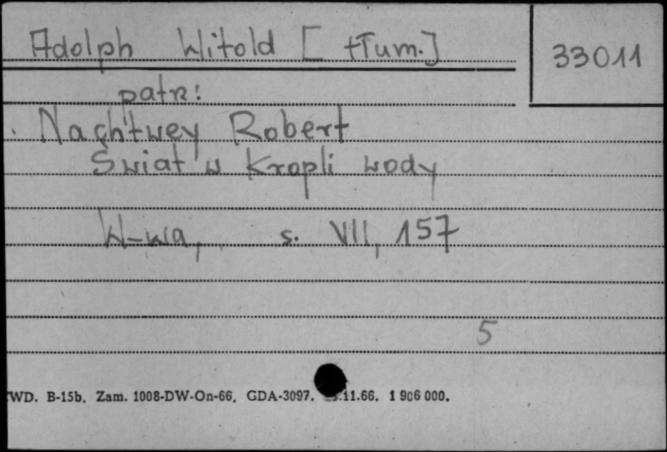 Adolph Witold [tłum.]
33011
patrz:
Nachtwey Robert
Świat w Kropli wody
W-wa, s. VII, 157
5
WD. B-15b. Zam. 1008-DW-On-66. GDA-3097. .11.66. 1 906 000.